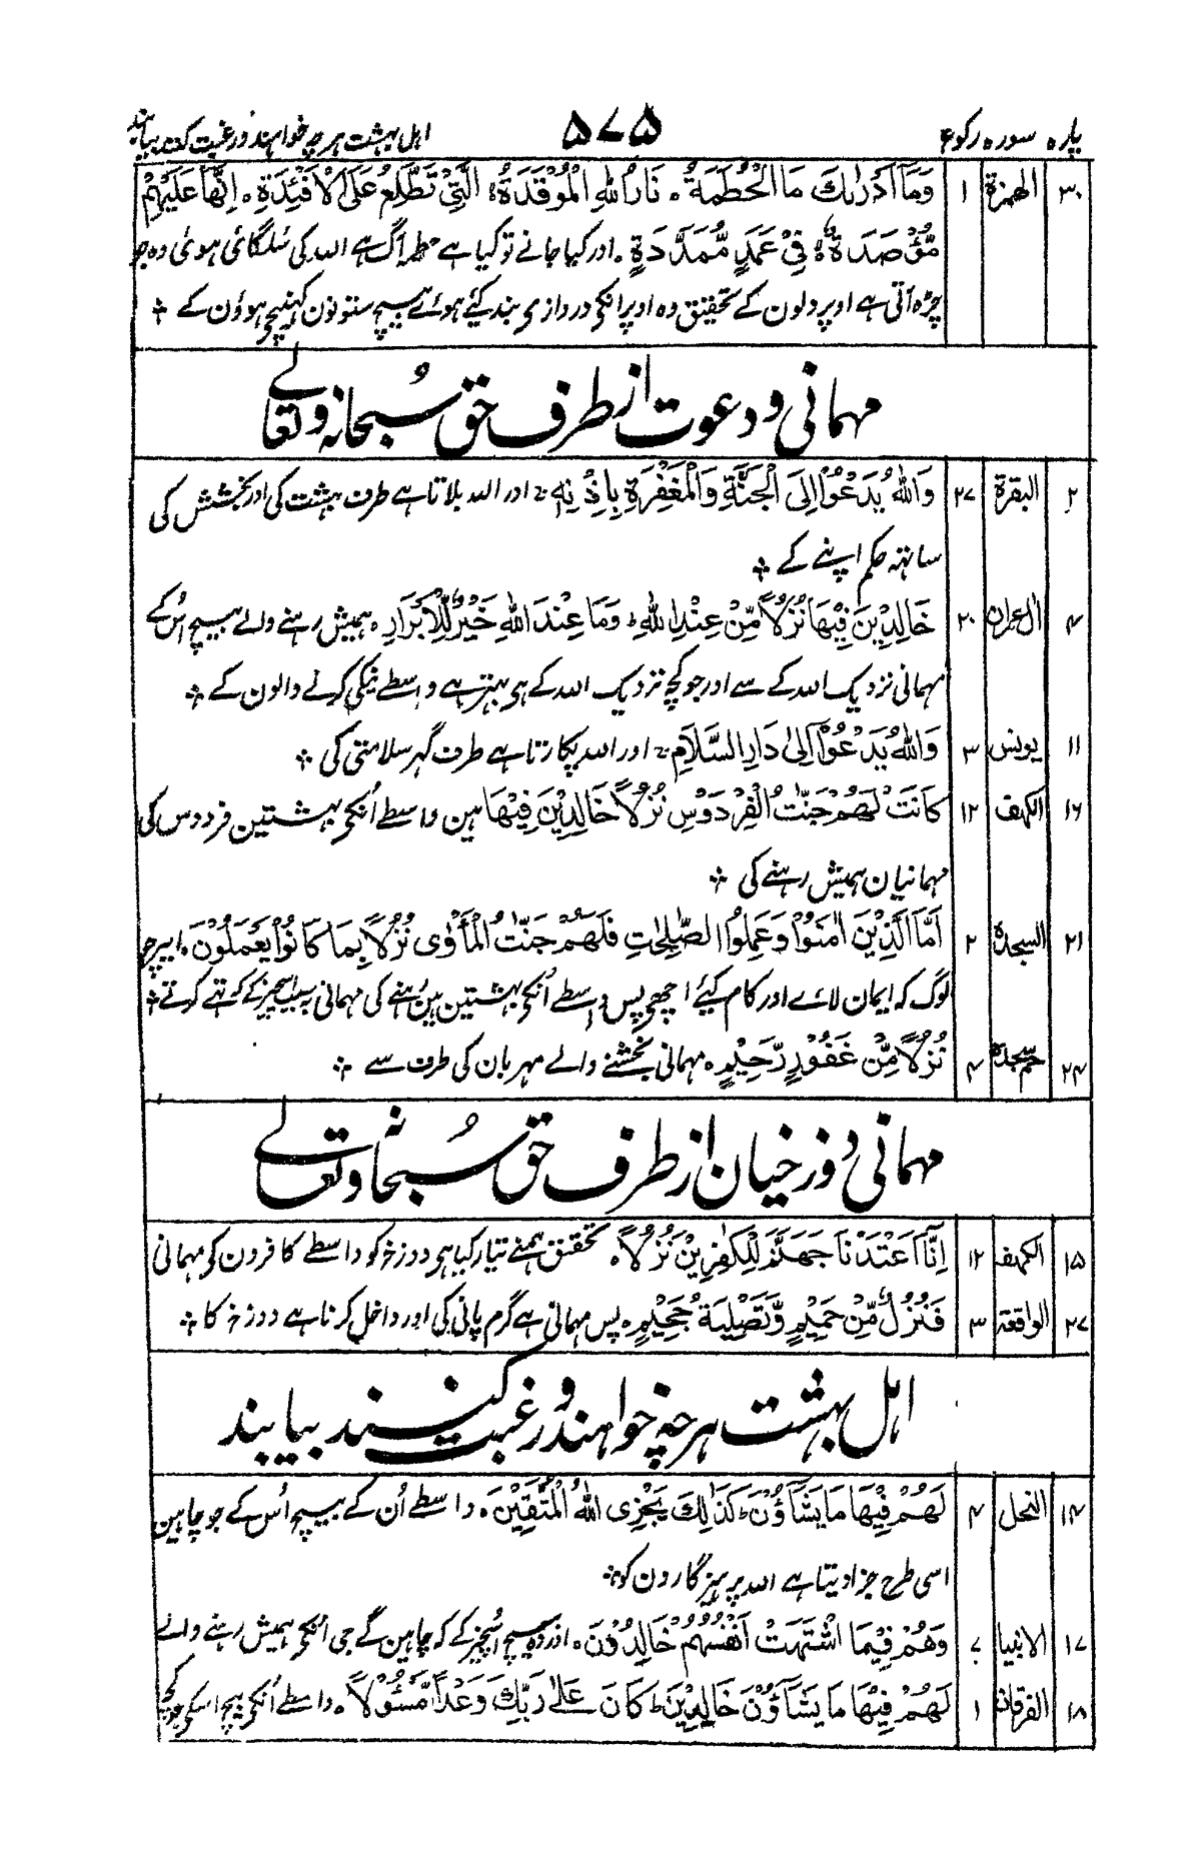 پارہ سورہ رکوع ۵۷۵ اہل بہشت ہرچہ خواہند و رغبت کنند بیابند
۳۰ الھمزۃ ۱ وَمَآ اَدْرٰىكَ مَا الْحُطَمَةُ ۰ نَارُ اللّٰهِ الْمُوْقَدَةُ ۙ الَّتِيْ تَطَّلِعُ عَلَى الْاَفْئِدَةِ ۰ اِنَّهَا عَلَيْهِمْ
مُّؤْصَدَةٌ ۙ فِيْ عَمَدٍ مُّمَدَّدَةٍ ۰ اور کیا جانے تو کیا ہے حطمہ آگ ہے اللہ کی سُلگائی ہوئی وہ جو
چڑہ آتی ہے اوپر دلون کے تحقیق وہ اوپر انکی دروازی بند کیٔے ہوئے بیچ ستونون کہنیچی ہوؤن کے ؞
مہمانی و دعوت از طرف حق سُبحانہ و تعالےٰ
۲ البقرۃ ۲۷ وَاللّٰهُ يَدْعُوْٓا اِلَى الْجَنَّةِ وَالْمَغْفِرَةِ بِاِذْنِهٖ ۚ اور اللہ بلاتا ہے طرف بہشت کی اور بخشش کی
ساتہہ حکم اپنے کے ؞
۴ اٰل عمران ۲۰ خَالِدِيْنَ فِيْهَا نُزُلًا مِّنْ عِنْدِ اللّٰهِ ؕ وَمَا عِنْدَ اللّٰهِ خَيْرٌ لِّلْاَبْرَارِ ۰ ہمیش رہنے والے بیچ اُس کے
مہمانی نزدیک اللہ کے سے اور جو کچہ نزدیک اللہ کے ہی بہتر ہے واسطے نیکی کرنے والون کے ؞
۱۱ یونس ۳ وَاللّٰهُ يَدْعُوْٓا اِلٰى دَارِ السَّلَامِ ۚ اور اللہ پکارتا ہے طرف گہر سلامتی کی ؞
۱۶ الکہف ۱۲ كَانَتْ لَهُمْ جَنّٰتُ الْفِرْدَوْسِ نُزُلًا خَالِدِيْنَ فِيْهَا ہین واسطے اُنکی بہشتین فردوس کی
مہمانیان ہمیش رہنے کی ؞
۲۱ السجدۃ ۲ اَمَّا الَّذِيْنَ اٰمَنُوْا وَعَمِلُوا الصّٰلِحٰتِ فَلَهُمْ جَنّٰتُ الْمَأْوٰى نُزُلًا بِمَا كَانُوْا يَعْمَلُوْنَ ۰ اپر جو
لوگ کہ ایمان لائے اور کام کیٔے اچھی پس واسطے اُنکی بہشتین ہین رہنے کی مہمانی بسبب اسچیز کے کہ تہے کرتے ؞
۲۴ حم سجدۃ ۴ نُزُلًا مِّنْ غَفُوْرٍ رَّحِيْمٍ ۰ مہمانی بخشنے والے مہربان کی طرف سے ؞
مہمانی دوزخیان از طرف حق سُبحانہ و تعالےٰ
۱۵ الکہف ۱۲ اِنَّآ اَعْتَدْنَا جَهَنَّمَ لِلْكٰفِرِيْنَ نُزُلًا ۰ تحقیق ہمنے تیار کیا ہی دوزخ کو واسطے کافرون کو مہمانی
۲۷ الواقعۃ ۳ فَنُزُلٌ مِّنْ حَمِيْمٍ وَّتَصْلِيَةُ جَحِيْمٍ ۰ پس مہمانی ہے گرم پانی کی اور داخل کرنا ہے دوزخ کا ؞
اہل بہشت ہرچہ خواہند و رغبت کنند بیابند
۱۴ النحل ۴ لَهُمْ فِيْهَا مَا يَشَآؤُنَ ؕ كَذٰلِكَ يَجْزِى اللّٰهُ الْمُتَّقِيْنَ ۰ واسطے اُن کے بیچ اُس کے جو چاہین
اسی طرح جزا دیتا ہے اللہ پرہیزگارون کو ؞
۱۷ الانبیا ۷ وَهُمْ فِيْمَا اشْتَهَتْ اَنْفُسُهُمْ خَالِدُوْنَ ۰ اور وہ بیچ اُسچیز کے کہ چاہین گے جی اُنکی ہمیش رہنے والے
۱۸ الفرقان ۱ لَهُمْ فِيْهَا مَا يَشَآؤُنَ خَالِدِيْنَ ؕ كَانَ عَلٰى رَبِّكَ وَعْدًا مَّسْئُوْلًا ۰ واسطے اُنکی بیچ اسکی جو کچھ